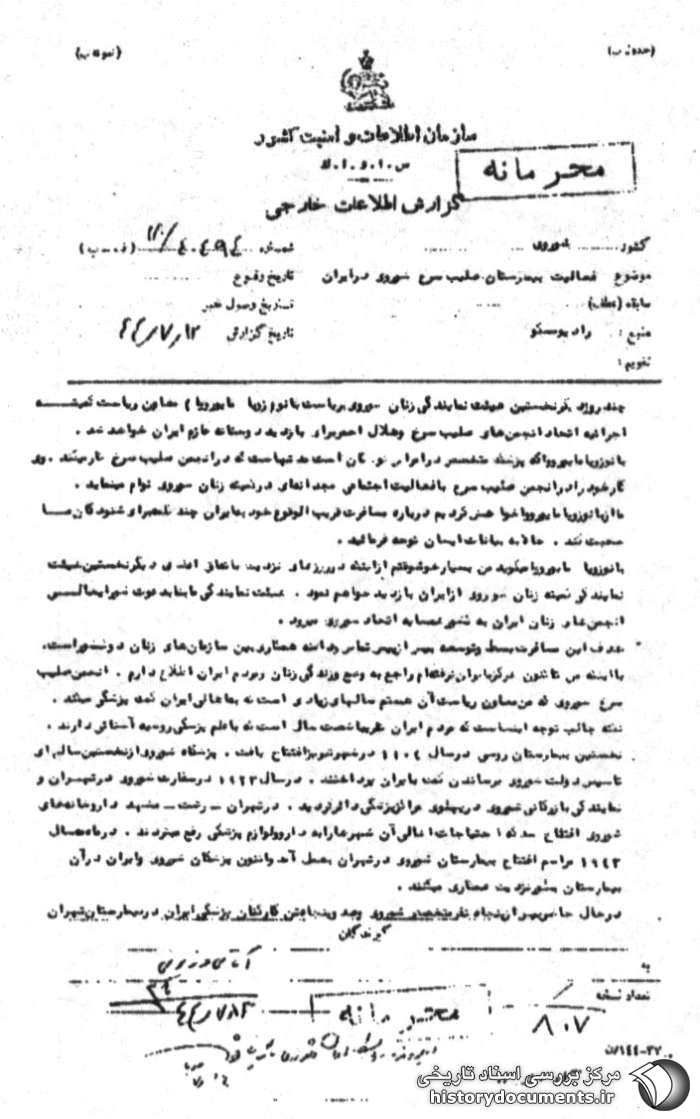 (نمونه ب)
سازمان اطلاعات و امنیت کشور
س.ا.و.ا.ک
محرمانه
گزارش اطلاعات خارجی
کشور شوروی
شماره
موضوع فعالیت بیمارستان صلیب سرخ شوروی در ایران
تاریخ وقوع
سابقه (عطف)
تاریخ وصول خبر
منبع : رادیو مسکو
تاریخ گزارش ۱۲ر۷ر۴۴
تقویم :
چند روز دیگر نخستین هیئت نمایندگی زنان شوروی بریاست بانو زویا معاون ریاست کمیته
اجرائیه اتحاد انجمن های صلیب سرخ و هلال احمر برای بازدید دوستانه عازم ایران خواهد شد .
که پزشک متخصص در امراض کودکان است مدتهاست که در انجمن صلیب سرخ کار میکند . وی
کار خود را در انجمن صلیب سرخ با فعالیت اجتماعی در کمیته زنان شوروی توام مینماید .
خواهش کردیم درباره مسافرت قریب الوقوع خود بایران چند کلمه برای شنوندگان ما
صحبت کند . حالا به بیانات ایشان توجه فرمائید .
بانو زویا میگوید من بسیار خوشوقتم از اینکه در روزهای نزدیک باتفاق اعضای دیگر نخستین هیئت
نمایندگی کمیته زنان شوروی از ایران بازدید خواهم نمود . هیئت نمایندگی ما بنا بدعوت شورایعالی
انجمن های زنان ایران به کشور همسایه اتحاد شوروی میرود .
هدف این مسافرت بسط و توسعه بیش از پیش تماس و دامنه همکاری بین سازمان های زنان دو کشور است.
با اینکه من تاکنون هرگز بایران نرفته ام راجع به وضع زندگی زنان و مردم ایران اطلاع دارم . انجمن صلیب
سرخ شوروی که من معاون ریاست آن هستم سالهای زیادی است که به اهالی ایران کمک پزشکی میکند .
نکته جالب توجه اینست که مردم ایران تقریبا شصت سال است که با علم پزشکی روسیه آشنائی دارند .
نخستین بیمارستان روسی در سال در شهر تبریز افتتاح یافت . پزشگاه شوروی از نخستین سالهای
تاسیس دولت شوروی برساندن کمک بایران پرداختند . در سال ۱۹۲۳ در سفارت شوروی در تهران و
نمایندگی بازرگانی شوروی در پهلوی مراکز پزشکی دائر گردید . در تهران ـ رشت ـ مشهد داروخانه های
شوروی افتتاح شد که احتیاجات اهالی آن شهرها را به دارو و لوازم پزشکی رفع میکردند . در ماه سال
۱۹۴۳ مراسم افتتاح بیمارستان شوروی در تهران بعمل آمد و اکنون پزشکان شوروی و ایران در آن
بیمارستان بطور نزدیک همکاری میکنند .
در حال حاضر بیش از پنجاه نفر متخصص شوروی و صد و پنجاه تن کارکنان پزشکی ایران در بیمارستان تهران
گیرندگان
به
تعداد نسخه
۸۰۷
محرمانه
۳۷-۱۴۴/ن
مرکز بررسی اسناد تاریخی
historydocuments.ir